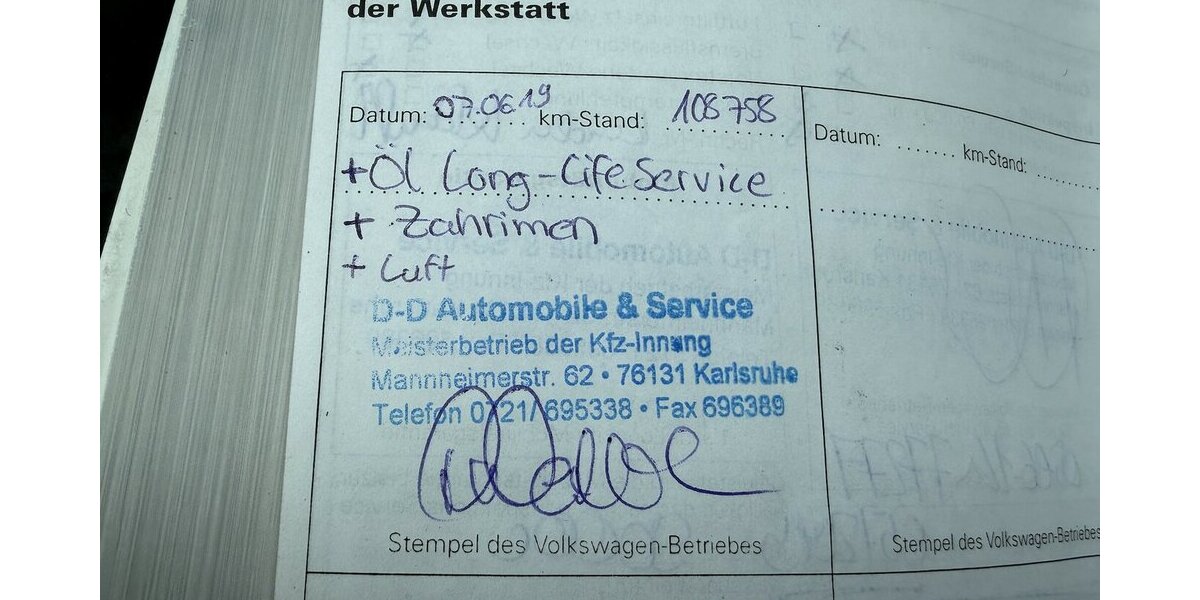 der Werkstatt
Datum: 07.06.19 km-Stand: 108758
+ Öl Long-Life Service
+ Zahrimen
+ Luft
D-D Automobile & Service
Meisterbetrieb der Kfz-Innung
Mannheimerstr. 62 • 76131 Karlsruhe
Telefon 0721/695338 • Fax 696389
Stempel des Volkswagen-Betriebes
Datum: ....... km-Stand: ..........
Stempel des Volkswagen-Betriebes